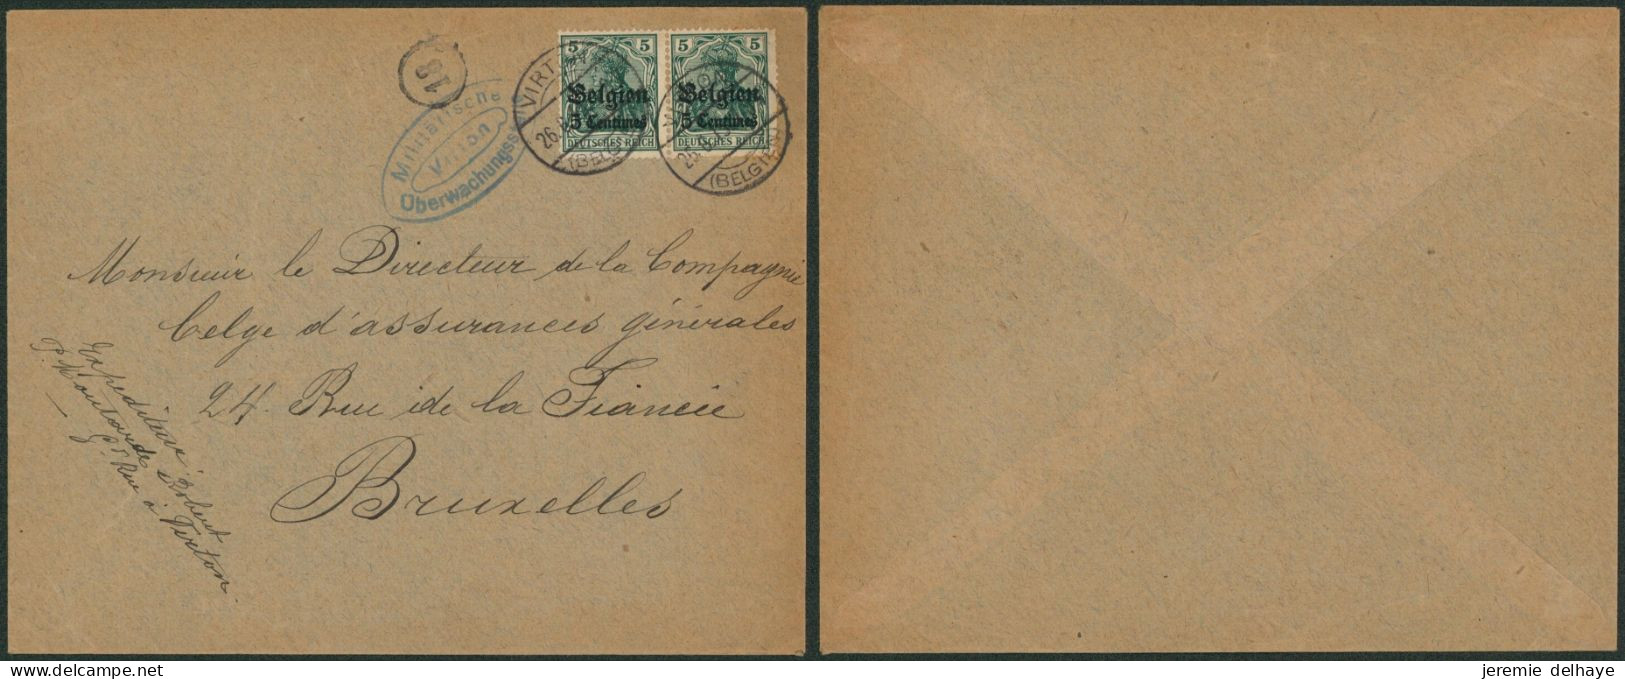 18
Militärische
Virton
Überwachungsstelle
5 5
Belgien
5 Centimes
DEUTSCHES REICH
5 5
Belgien
5 Centimes
DEUTSCHES REICH
VIRTON
26.8
(BELGIEN)
VIRTON
(BELGIEN)
Monsieur le Directeur de la Compagnie
Belge d'assurances générales
24. Rue de la Fiancée
Bruxelles
Expéditeur: Robert
P. Moutarde
Gde Rue à Virton.
jeremie delhaye